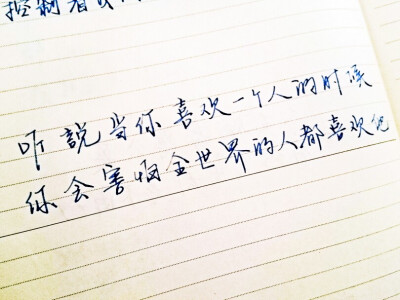 控制着
听說当你喜欢一个人的时候
你会害怕全世界的人都喜欢他